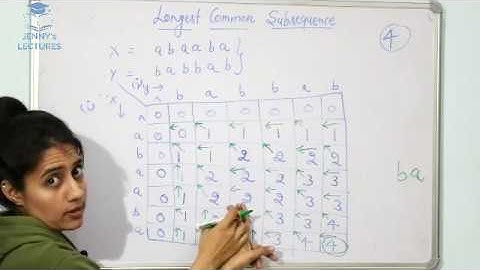 JENNY's
LECTURES
Longest Common Subsequence
4
X = a b a a b a }
Y = b a b b a b }
(j) y →
^ b a b b a b
(i) x ↓
^ 0 0 0 0 0 0 0
a 0 0 1 1 1 1 1
b 0 1 1 2 2 2 2
a 0 1 2 2 2 3 3
a 0 1 2 2 2 3 3
b 0 1 3 3 4
a 0 3 4 4
ba